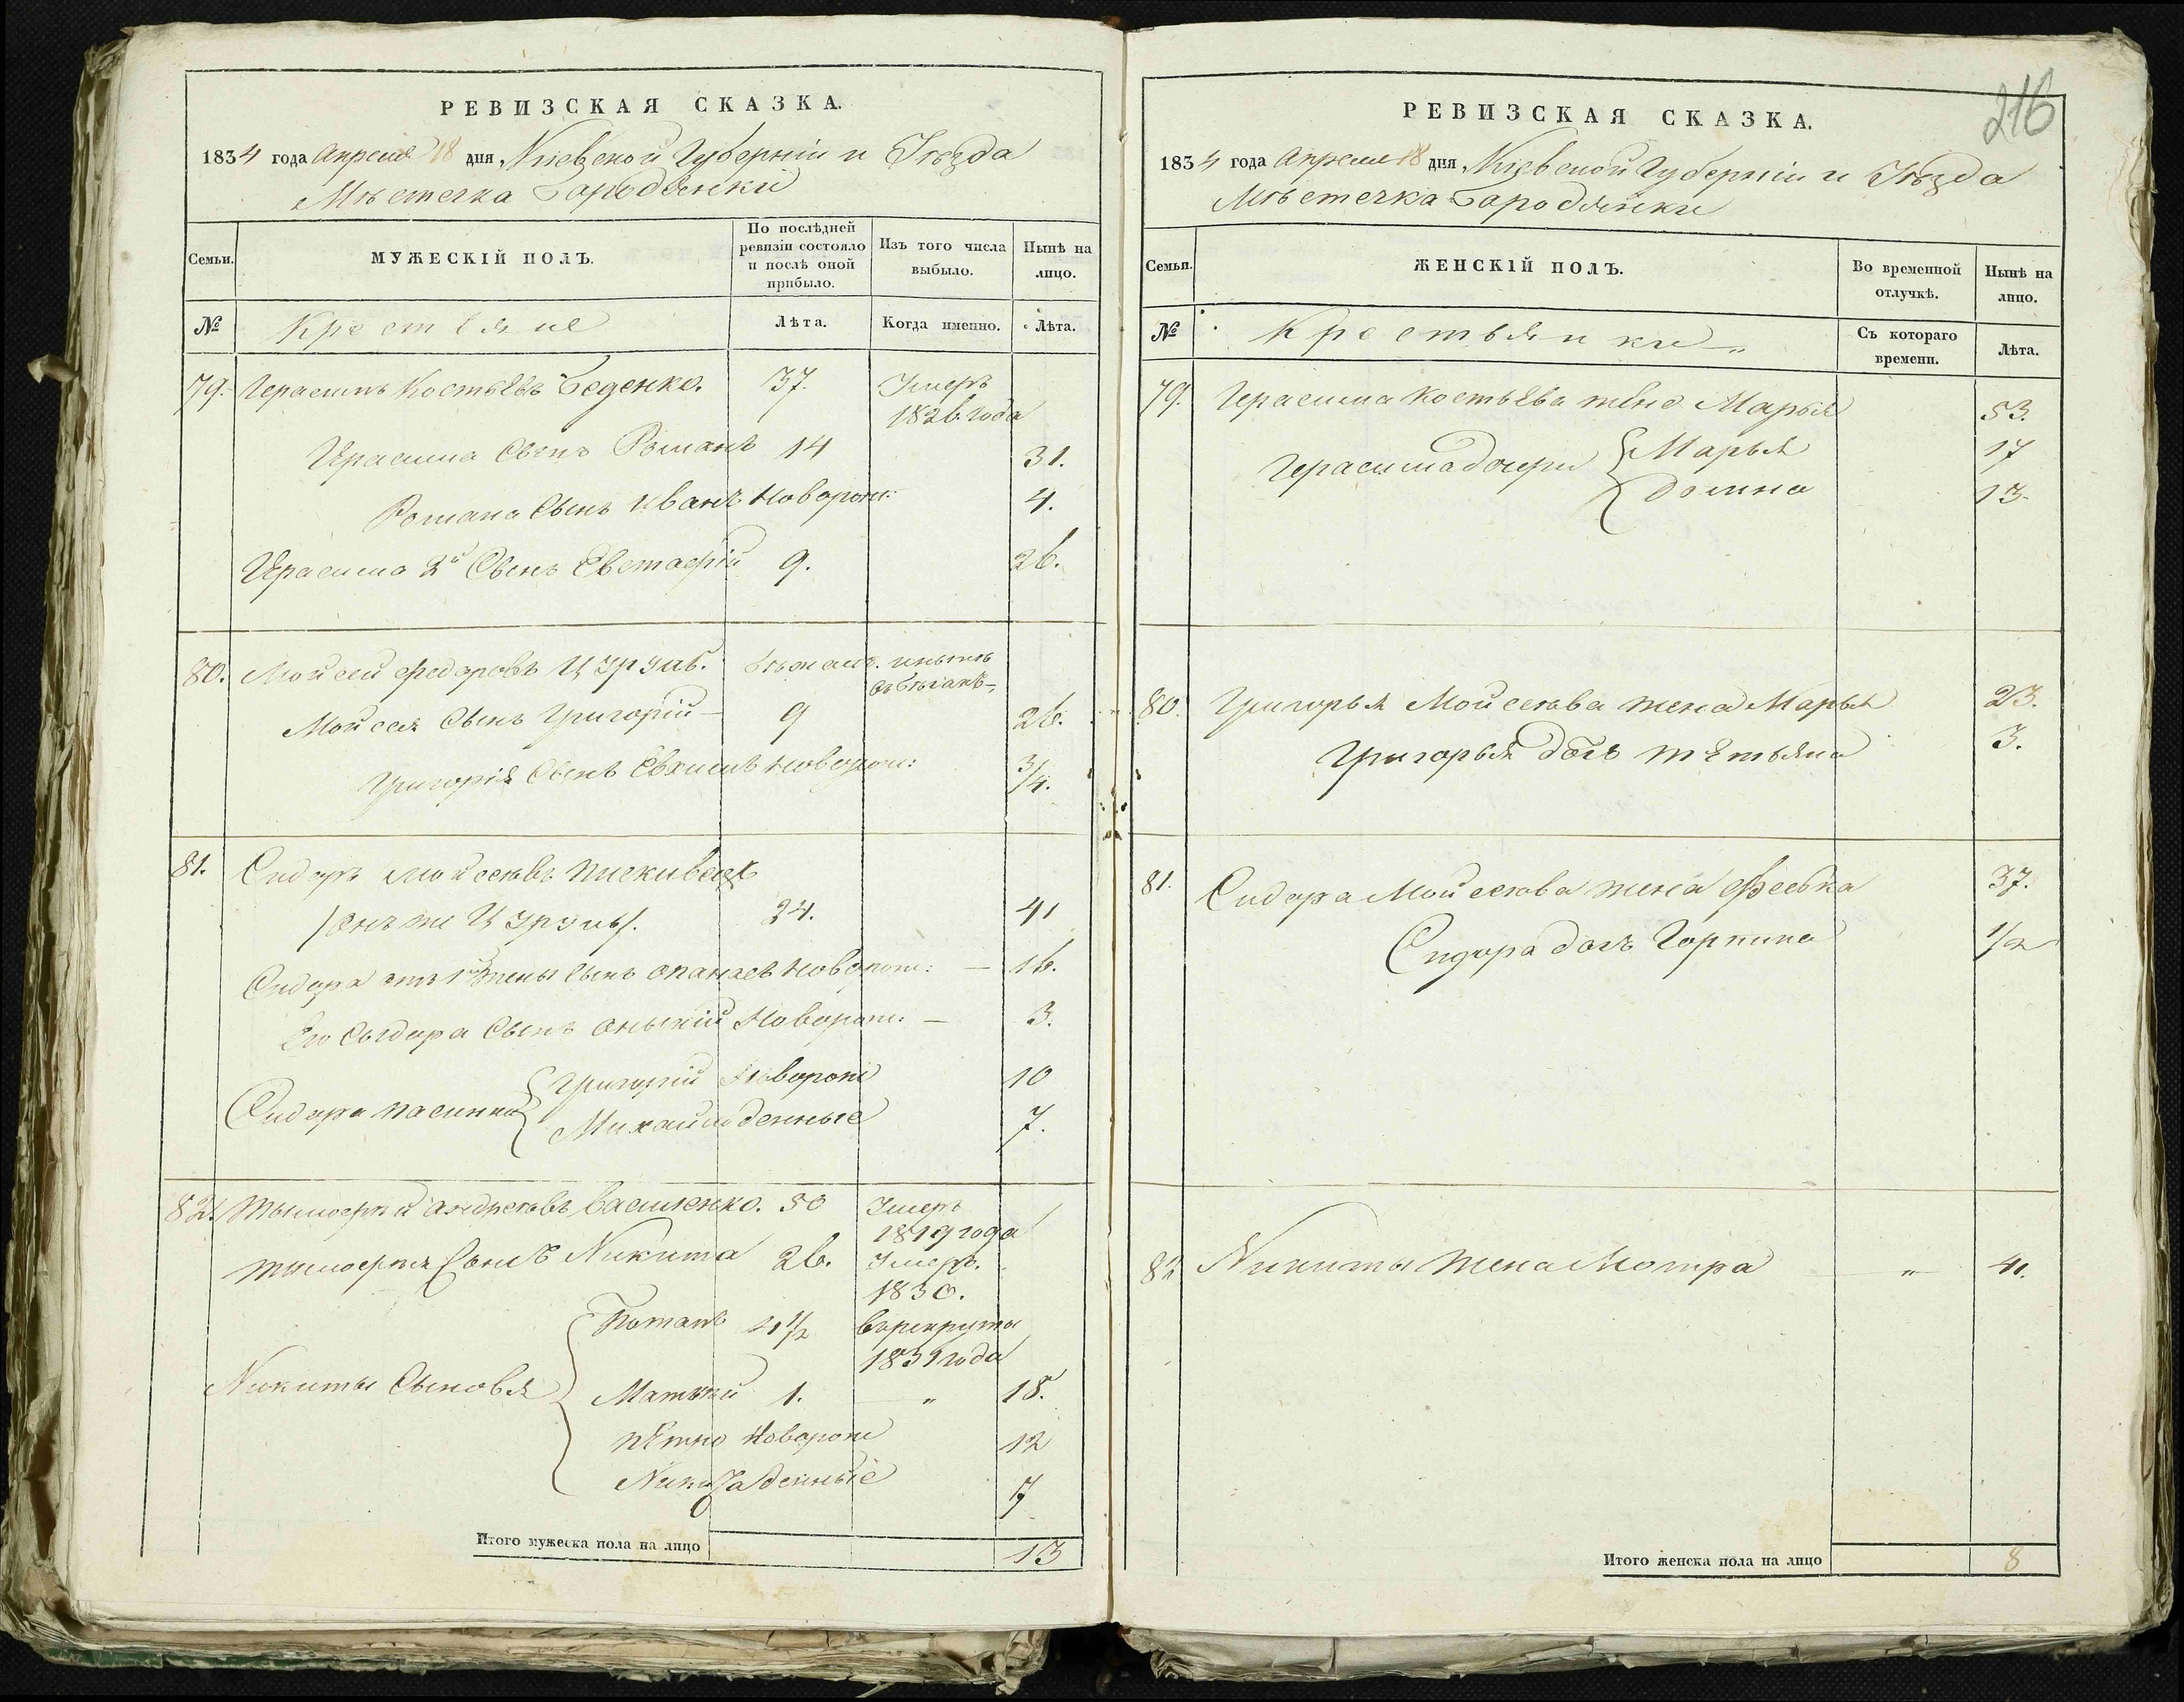 РЕВИЗСКАЯ СКАЗКА.
1834 года Апреля 18 дня, Кіевской Губерніи и Уѣзда
Мѣстечка Бородянки
Семьи.
МУЖЕСКІЙ ПОЛЪ.
По послѣдней
ревизіи состояло
и послѣ оной
прибыло.
Изъ того числа
выбыло.
Нынѣ на
лицо.
№
Крестьяне
Лѣта.
Когда именно.
Лѣта.
79. Герасимъ Костьевъ Беденко. 37. Умеръ
1826 года
Герасима Сынъ Романъ 14 31.
Романа Сынъ Иванъ новорож: 4.
Герасима 2й Сынъ Евстафій 9. 26.
80. Мойсей Федоровъ Цуруль. бѣжалъ. и нынѣ
въ бѣгахъ
Мойсея Сынъ Григорій 9 26.
Григорія Сынъ новорож: 3/4.
81. Сидоръ Мойсеювъ
/онъ же Цуруль/. 24. 41
Сидора отъ 1й жены сынъ опанасъ новорож: — 16.
Его Сыдора Сынъ новорож: — 3.
Сидора пасинки Григорій новорож 10
Михайло денные 7.
82. Тымофей андреювъ Василенко. 50 Умеръ
1819 года
Тымофея Сынъ Никита 26. Умеръ.
1830.
Потапъ 11 1/2 въ рекруты
1831 года
Никиты Сыновья Матвій 1. — „ 18.
пЕтро новорож 12
Никита денные 7
Итого мужеска пола на лицо 13
216
РЕВИЗСКАЯ СКАЗКА.
1834 года Апреля 18 дня, Кіевской Губерніи и Уѣзда
Мѣстечка Бородянки
Семьи.
ЖЕНСКІЙ ПОЛЪ.
Во временной
отлучкѣ.
Нынѣ на
лицо.
№
Крестьянки „
Съ котораго
времени.
Лѣта.
79. Герасима Костьева жена Марья 53.
Герасима дочери Марья 17
Домна 13
80. Григорья Мойсеюва жена Марья 23.
Григорья дочь тЕтьяна 3.
81. Сидора Мойсеюва жена Феська 37.
Сидора дочь Горпина 1/2
82 Никиты жена Мотра — „ — 41.
Итого женска пола на лицо 8